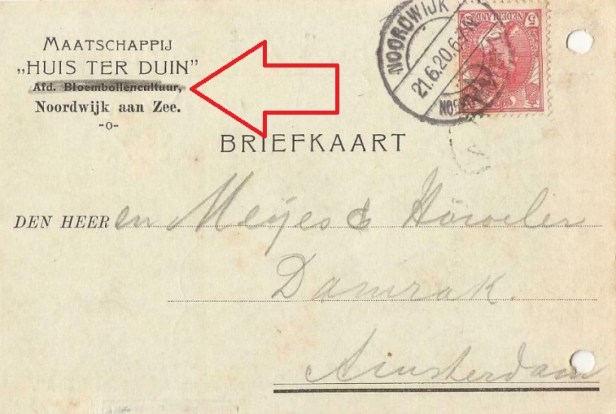 MAATSCHAPPIJ
„HUIS TER DUIN”
Afd. Bloembollencultuur,
Noordwijk aan Zee.
-o-
NOORDWIJK
21.6.20.6-7N
5
BRIEFKAART
DEN HEER en Meijes &
Damrak.
Amsterdam